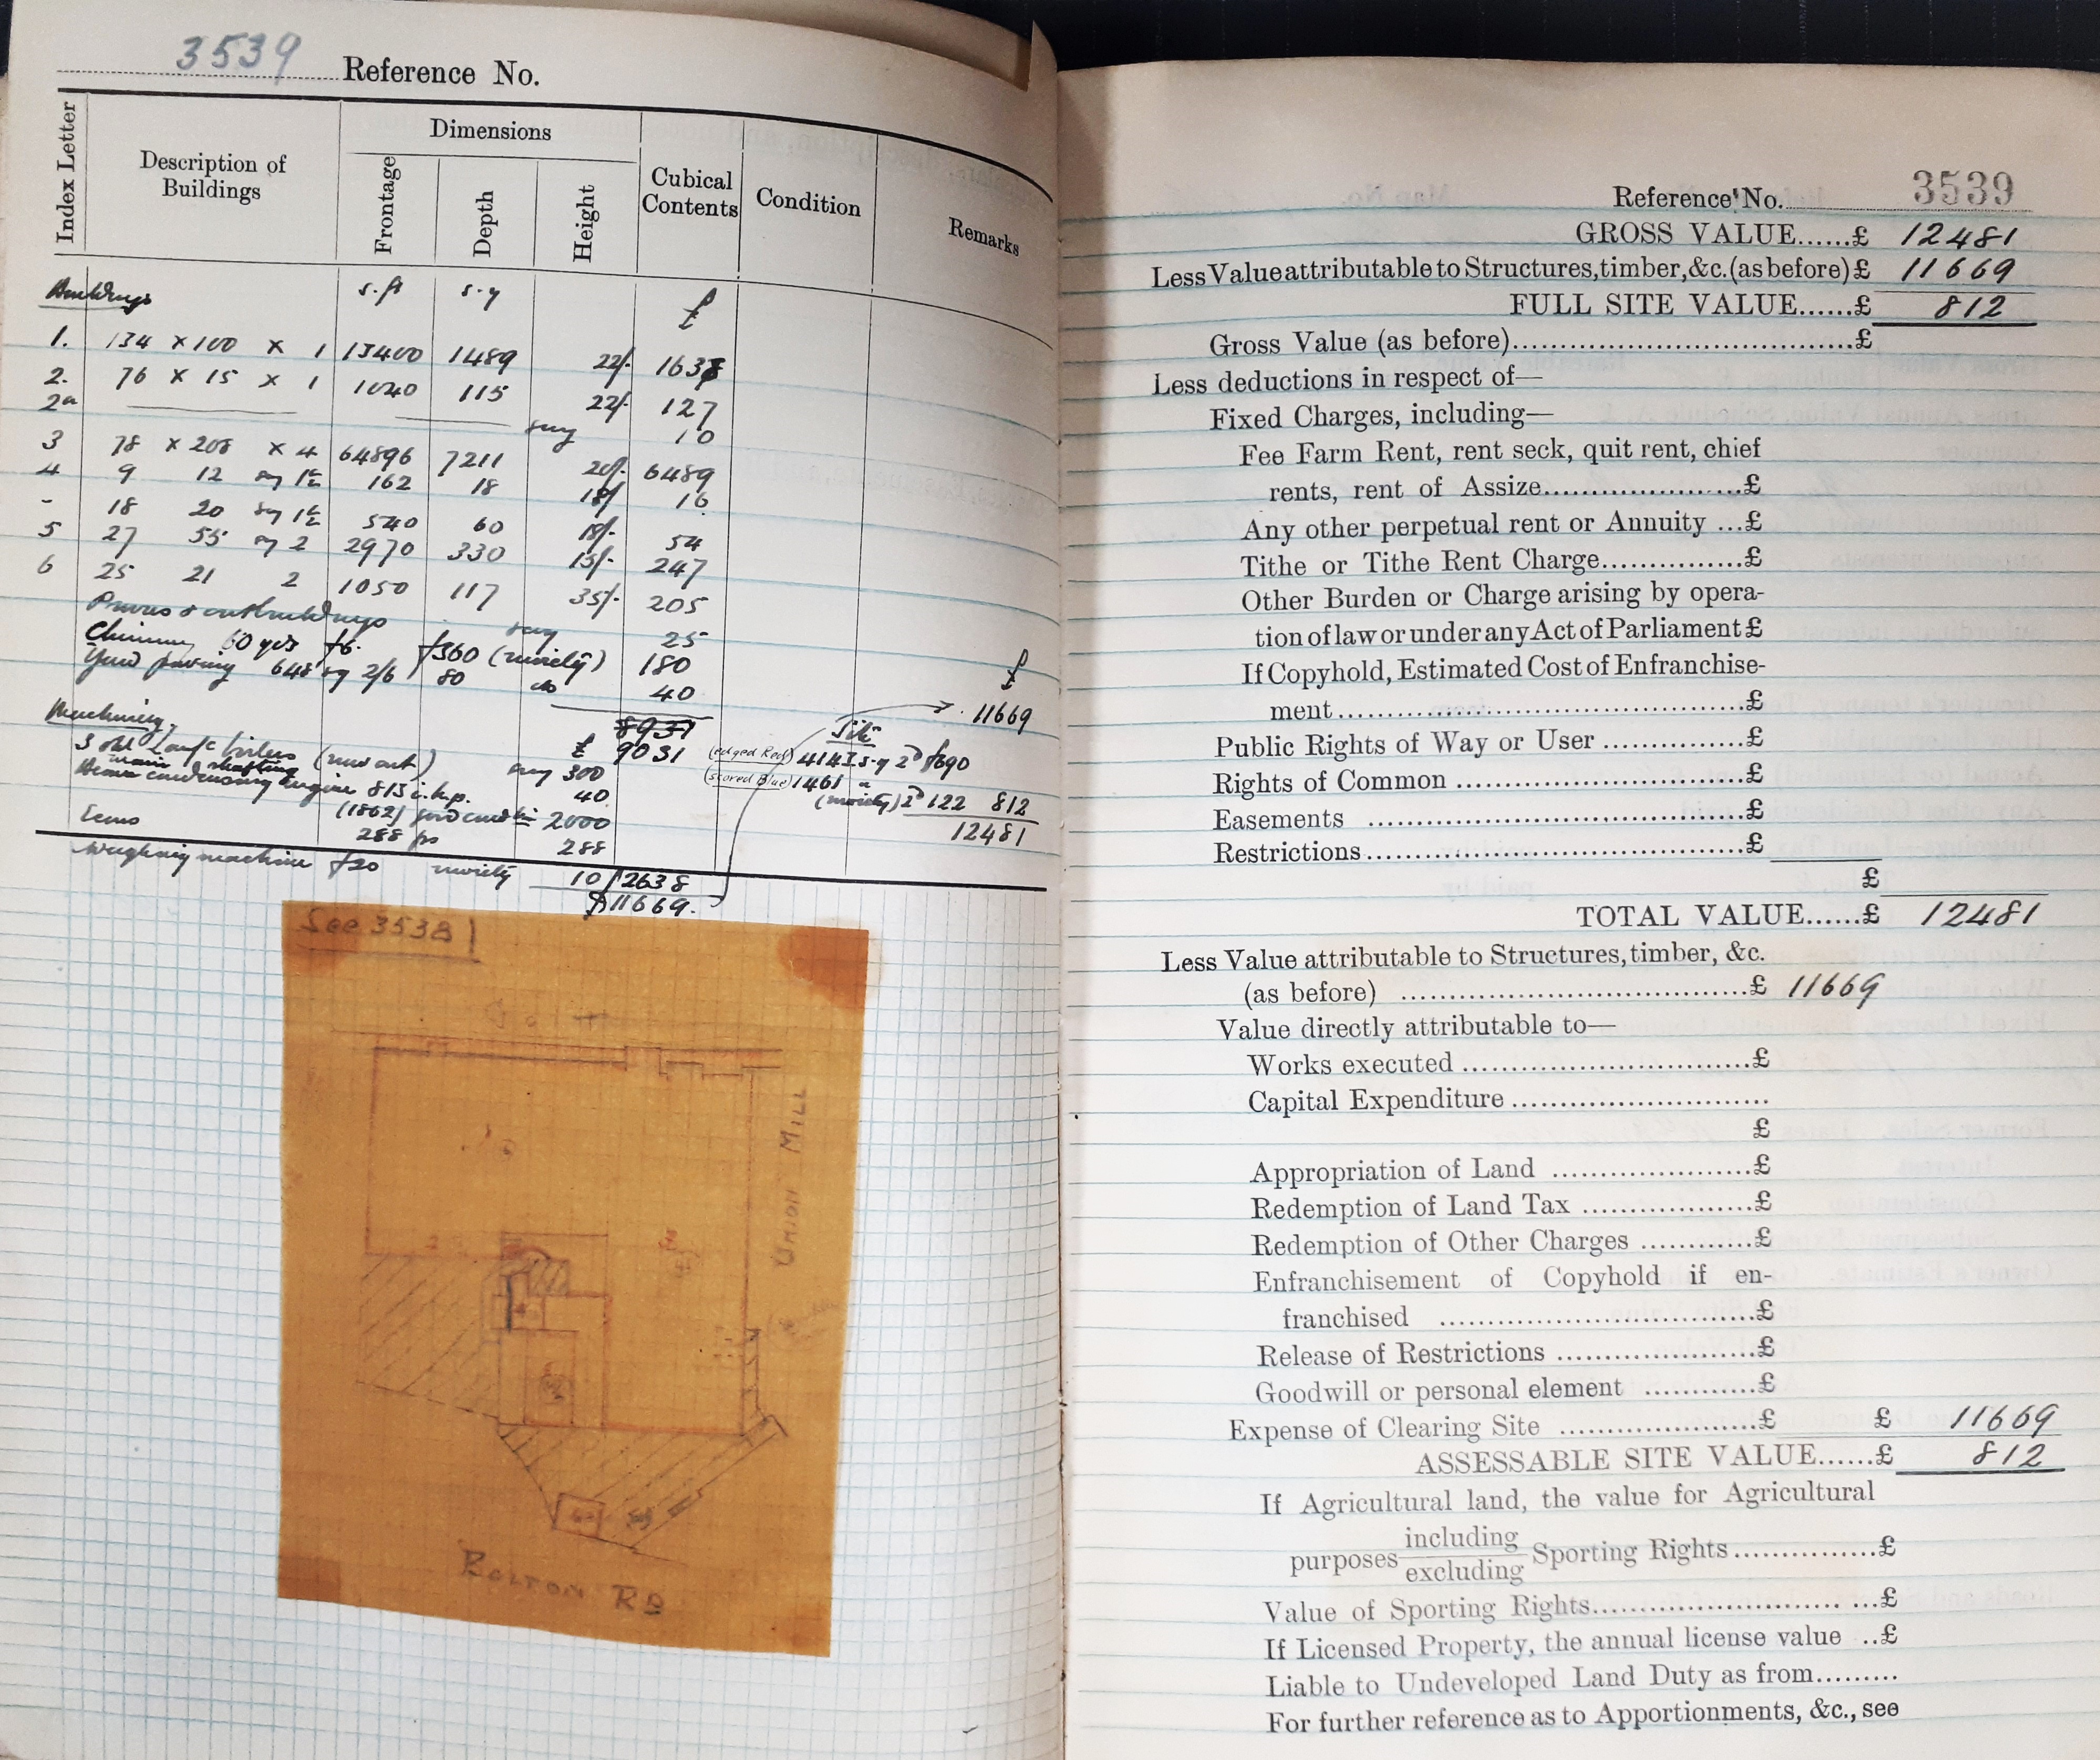 3539 Reference No.
Index Letter
Description of Buildings
Dimensions
Frontage
Depth
Height
Cubical Contents
Condition
Remarks
Buildings s.ft s.y £
1. 134 × 100 × 1 13400 1489 22/- 1638
2. 76 × 15 × 1 1040 115 22/- 127
2a say 10
3 78 × 208 × 4 64896 7211 20/- 6489
4 9 12 say 1½ 162 18 18/ 16
- 18 20 say 1½ 540 60 18/- 54
5 27 55 say 2 2970 330 15/- 247
6 25 21 2 1050 117 35/- 205
Privies & outbuildings say 25
Chimney 60 yds £6. £360 (moiety) 180
Yard paving 648 sy 2/6 80 do 40
8951
£ 9031
Machinery.
3 old Lancs boilers (worn out) say 300
main shafting 40
Beam condensing engine 815 i.h.p.
(1862) good condin 2000
288 ps 288
Weighing machine £20 moiety 10 £2638
£11669.
£
11669
Site
(edged Red) 4141 s.y 2d £690
(scored Blue) 1461 "
(moiety) 2d 122 812
12481
See 3538
UNION MILL
BOLTON RD
Reference No. 3539
GROSS VALUE......£ 12481
Less Value attributable to Structures, timber, &c. (as before) £ 11669
FULL SITE VALUE......£ 812
Gross Value (as before)......£
Less deductions in respect of—
Fixed Charges, including—
Fee Farm Rent, rent seck, quit rent, chief
rents, rent of Assize......£
Any other perpetual rent or Annuity ...£
Tithe or Tithe Rent Charge......£
Other Burden or Charge arising by opera-
tion of law or under any Act of Parliament £
If Copyhold, Estimated Cost of Enfranchise-
ment......£
Public Rights of Way or User ......£
Rights of Common ......£
Easements ......£
Restrictions......£
£
TOTAL VALUE......£ 12481
Less Value attributable to Structures, timber, &c.
(as before) ......£ 11669
Value directly attributable to—
Works executed ......£
Capital Expenditure ......
£
Appropriation of Land ......£
Redemption of Land Tax ......£
Redemption of Other Charges ......£
Enfranchisement of Copyhold if en-
franchised ......£
Release of Restrictions ......£
Goodwill or personal element ......£
Expense of Clearing Site ......£ £ 11669
ASSESSABLE SITE VALUE......£ 812
If Agricultural land, the value for Agricultural
including
purposes Sporting Rights......£
excluding
Value of Sporting Rights...... ...£
If Licensed Property, the annual license value ..£
Liable to Undeveloped Land Duty as from.........
For further reference as to Apportionments, &c., see